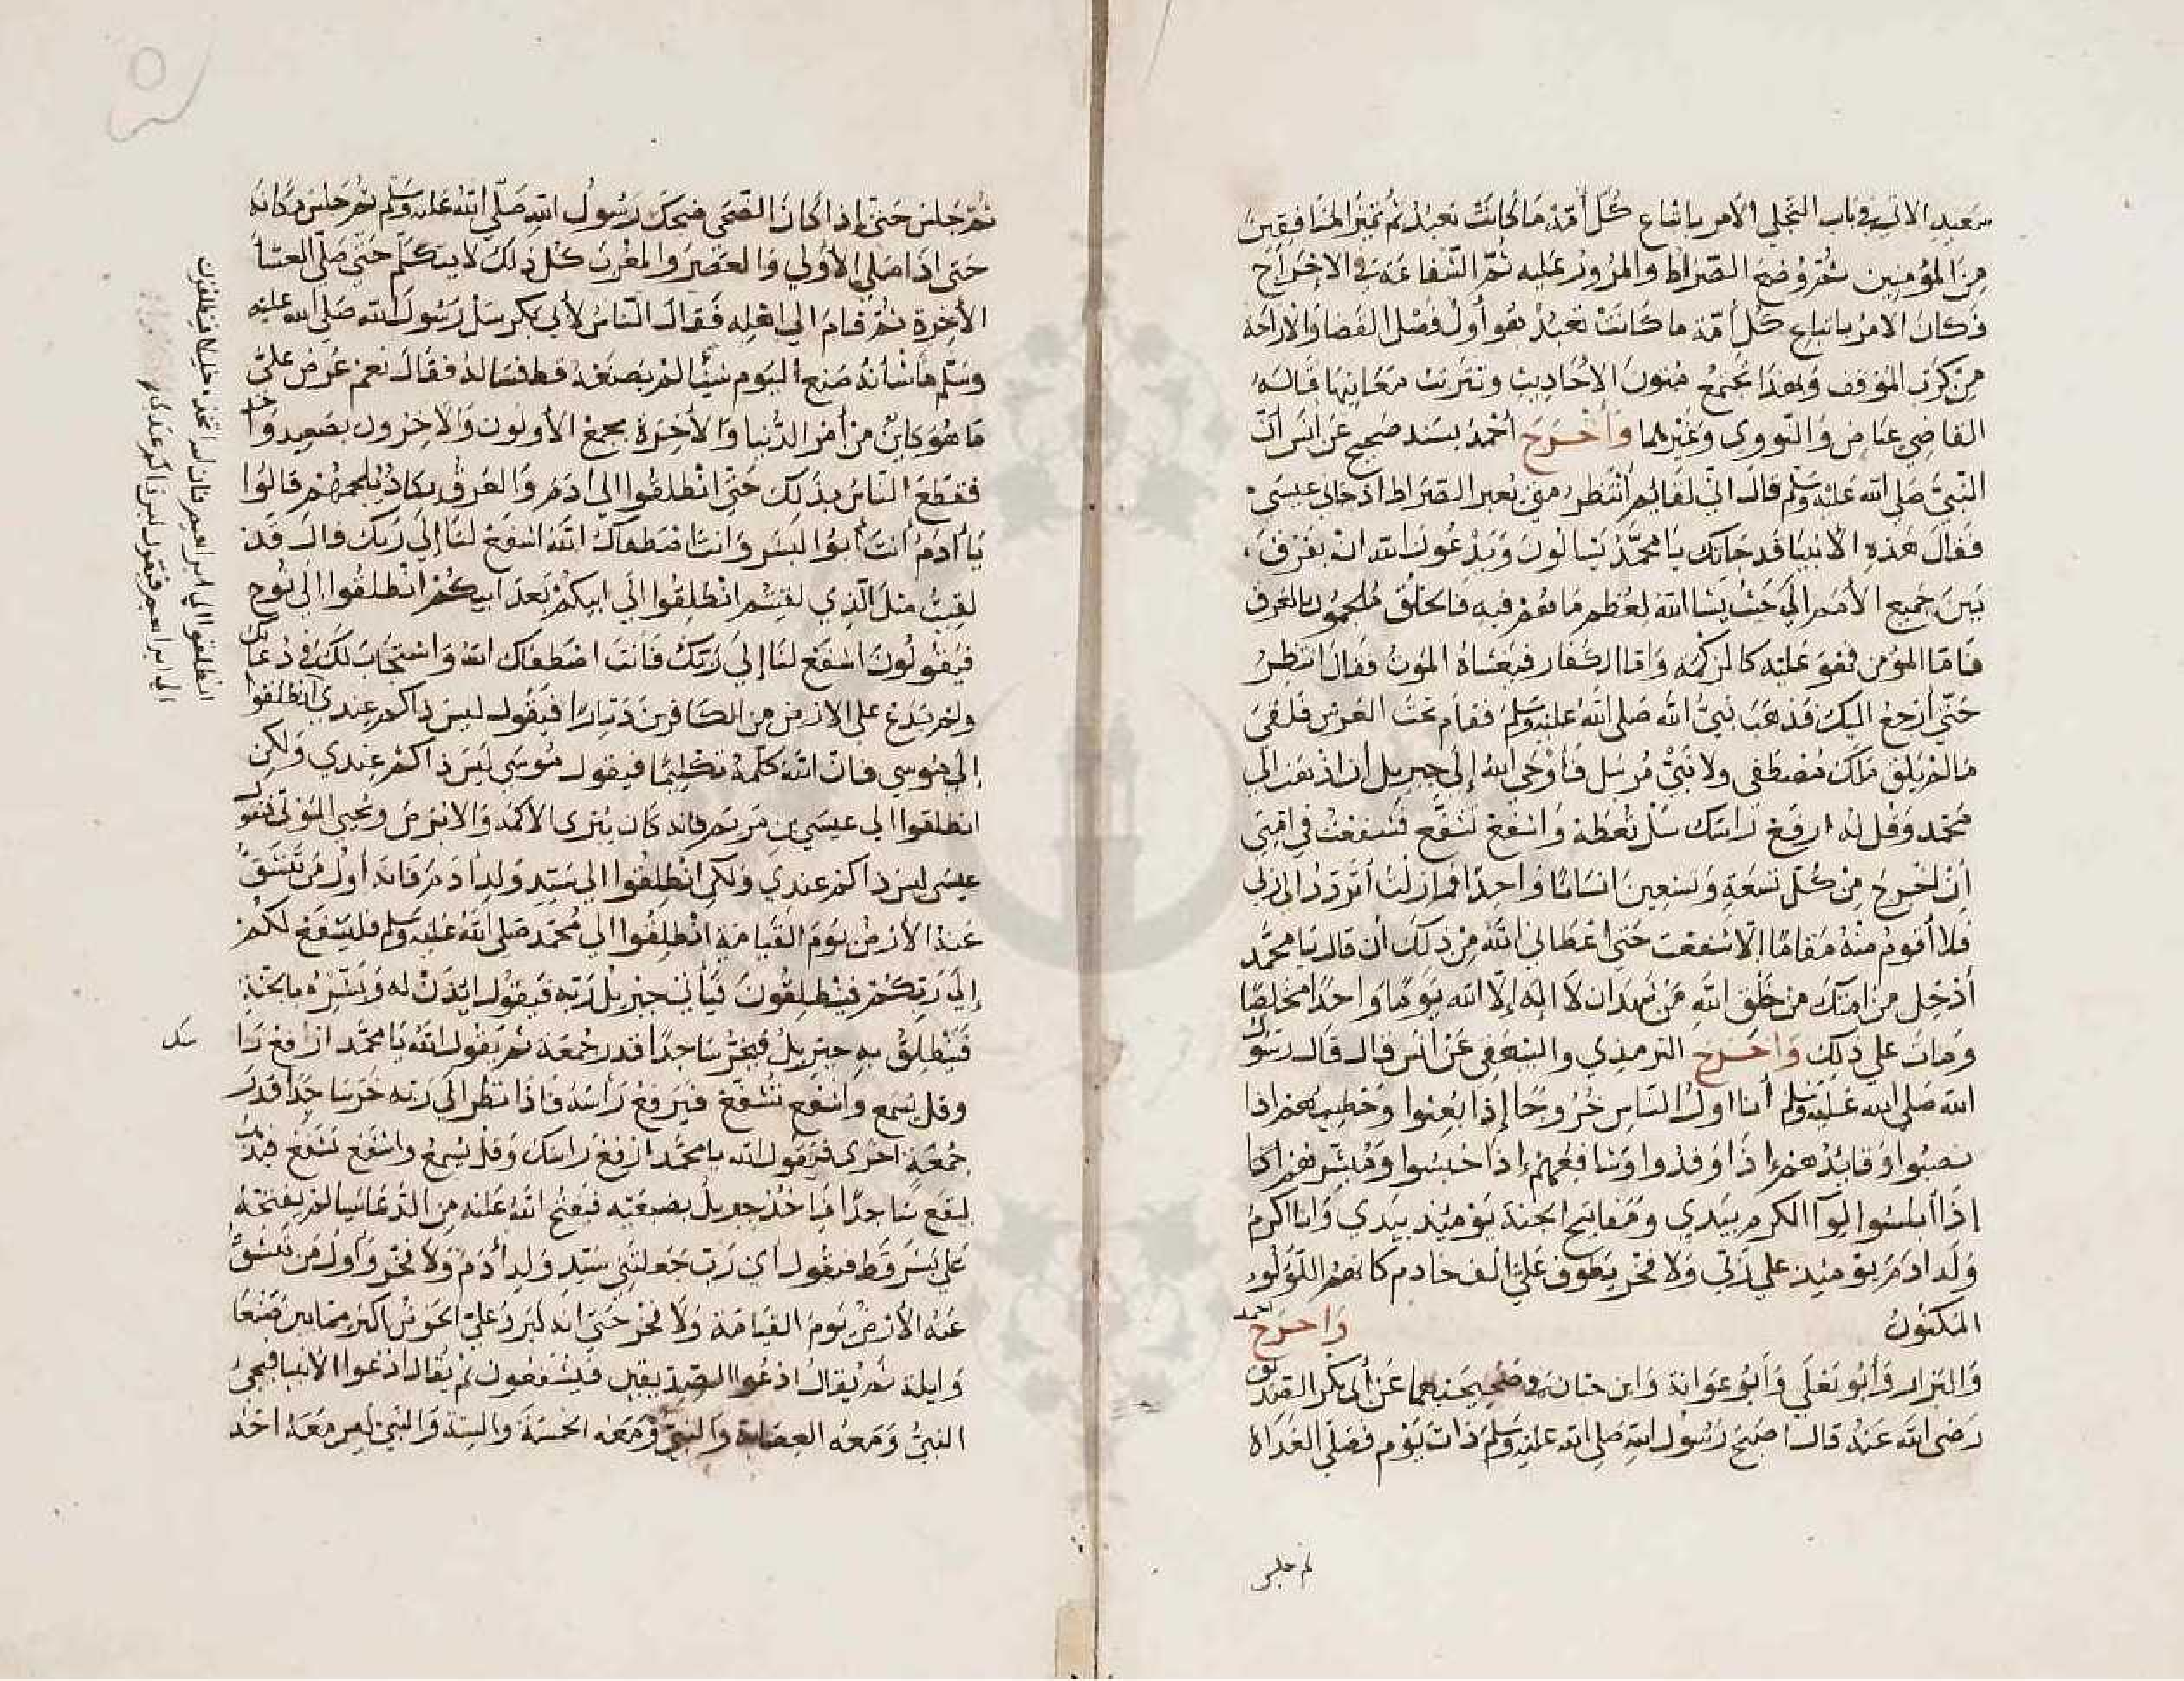 سعيد الاتي في باب التجلي الأمر باتباع كُلّ أمّة مَا كَانَتْ تعبدُ ثمّ تميز المنافقينَ
مِنَ المؤمنِين ثمّ وُضع الصّراط والمرُور عَليه ثمّ الشفاعَة في الإخراج
فكان الامرُ باتباع كل أمّة ما كَانَتْ تعبُد هو أول فصْل القضا والاراحة
مِنْ كرَب الموقف وَبهذا تجتمع متونُ الاحَاديث وتترتب معَانيهَا قالهُ
القاضي عيَاض وَالنووي وَغيرهما وَأخْرَجَ أحْمدُ بسَند صَحيح عَن أنَس أنّ
النّبيّ صَلى الله عَليْه وسَلم قالَ اني لقايمٌ أنتظر متى يُعبر الصّراط اذ جاني عيسَى
فقالَ هَذه الأنبيَا قد جَاتك يَا محمّد يَسْالونَ وَيَدْعُونَ الله ان يفرق
بَينَ جَميع الأمَم الى حَيث يَشا الله لعُظم مَا هُمْ فيه فالخلق مُلجمُون بالعَرق
فامّا المؤمن فهوَ عَليْه كالزكْمة وَامّا الكفار فيغشاهُ الموتُ فقالَ انتظرْ
حَتّى أرجعَ اليكَ فذهَبَ نبيُّ الله صَلى اللهُ عَليْه وسَلم فقام تحتَ العَرش فلقيَ
مَا لم يَلق مَلك مُصْطفى ولا نبيّ مُرسَل فأوْحَى اللهُ إلى جبريل أن اذهَبْ الى
محمّد وَقل لهُ ارفع رَاسَك سَلْ تُعطهْ وَاشفع تشفع فشفعتُ في امّتي
أنْ اخْرجَ مِنْ كُلّ تسْعَةٍ وَتسْعينَ انسَانًا وَاحدًا فما زلتُ أتَردّدُ الى رَبّي
فلا أقومُ منْهُ مَقامًا الّا شفعْت حَتى اعْطاني اللهُ مِنْ ذلكَ أن قال يَا محمّد
أدْخل منْ امّتكَ منْ خَلق اللهِ مَنْ شهدَ ان لَا إله إلّا الله يَومًا وَاحدًا مخلِصًا
وَماتَ عَلى ذلك وَاخْرَجَ الترمذي والبيهقي عَنْ انَس قال قال رَسُول
الله صَلى الله عَليه وسَلم أنا اولُ النّاس خُرُوجًا إذا بُعثوا وخَطيبُهم اذا
نصتوا وَقايدُهم اذا وَفدُوا وَشافعُهُمْ إذا حُبسُوا وَمُبشرهُم انا
إذا أبلسُوا لِوا الكرم بيَدي وَمَفاتيح الجنة يَوْمَئذ بيَدي وَانا اكرمُ
وَلد ادَمَ يَوْمئذ على رَبّي وَلا فخْر يَطوف عَليّ ألف خادم كانهمُ اللؤلؤ
المكنونُ وَاخرَج احمد
وَالبزار وَأبُو يَعْلَى وَأبُو عَوَانة وَابن حبّان في صَحيحيْهما عَنْ أبي بَكر الصّديق
رَضيَ الله عَنْهُ قالَ اصْبَح رَسُول اللهِ صَلى الله عَليْهِ وسَلم ذاتَ يَوْم فصَلى الغَدَاةَ
ثم جلس
ثمّ جَلسَ حَتّى إذا كانَ الضّحَى ضَحكَ رَسُولُ اللهِ صَلّى اللهُ عَليْه وسَلم ثم جَلسَ مكانهُ
حَتى اذا صَلى الأولى وَالعَصْر وَالمغْربَ كُل ذلكَ لا يَتكلّم حَتّى صَلّى العشا
الأخرة ثمّ قامَ الى اهْله فقالَ النّاسُ لأبي بكر سَلْ رَسُول الله صَلى الله عليه
وَسَلم مَا شأنهُ صَنعَ اليوم شيْئًا لم يَصنعْهُ قط فسَالهُ فقالَ نعَم عُرض عَليَّ
مَا هُوَ كاينٌ منْ أمر الدُّنيا وَالأخرَة يجمع الأولون وَالآخرون بصَعيد وَاحد
ففظعَ النّاسُ بذلكَ حَتّى انْطلقوا الى ادَمَ وَالعَرقُ يكادُ يُلجمهُمْ قالوا
يَا أدَمُ أنتَ أبُوا البَشر وَانتَ اصْطفاكَ اللهُ اشفعْ لنا إلى رَبك قالَ قدْ
لقيتُ مثلَ الّذي لقيتُم انطلقُوا الى ابيكمْ بَعدَ ابيكُمْ انْطلقُوا الى نُوح
فيَقولونَ اشْفعْ لنَا إلى رَبكَ فأنتَ اصْطفاك اللهُ وَاسْتجَابَ لكَ في دُعَائك
ولم يَدعْ عَلى الارْض من الكافرينَ دَيّارًا فيَقول ليسَ ذاكم عندي انطلقوا
إلى مُوسى فانَّ اللهَ كلمهُ تكليمًا فيقول مُوسَى ليسَ ذاكم عندي وَلكن
انطلقوا الى عيسَى بن مَريَم فانه كان يُبرى الأكمَهَ وَالابْرصَ ويُحيي الموْتى فيقول
عيسَى ليسَ ذاكم عندي وَلكن انْطلقُوا الى سَيّد وَلد ادَمَ فانه أولُ مَنْ تَنشَقُّ
عَنهُ الأرْضُ يَومَ القيَامَة انْطلقُوا الى محمّد صَلى اللهُ عَليْه وسَلم فليَشفَعْ لكمْ
إلى رَبّكمْ فينطلقُونَ فيَأتي جبريلُ رَبه فيَقولُ ائذنْ له وَبَشّرْهُ بالجنّة
فيَنْطلقُ بهِ جبريلُ فيَخرُّ سَاجدًا قدرَ جُمعَة ثم يَقولُ اللهُ يَا محمّد ارْفعْ رَا
سك
وقل يُسمَع واشفع تُشفّع فيَرفعُ رَأسَهُ فاذا نظرَ الى رَبّه خَرّ سَاجدًا قدرَ
جُمعَة اخْرى فيَقولُ الله يا محمّد ارْفعْ رَاسَك وَقلْ يُسْمعْ واشفع تُشفع فيذهب
ليقع سَاجدًا فيَاخُذ جبريلُ بضبعَيْه فيَفتَحُ اللهُ عَليْه منَ الدّعَا شيا لم يَفتحْهُ
عَلى بَشر قط فيَقول أي رَب جَعلتني سَيّدَ وَلد أدَمَ وَلا فخر وَأولَ مَن تَنشقُّ
عَنهُ الأرْضُ يَومَ القيَامَة وَلا فخر حَتى انه ليَردُ عَليّ الحَوْضَ اكثرُ ممّا بينَ صَنعَا
وَايلة ثمّ يُقالُ ادعُوا الصدّيقينَ فيَشْفعُون ثم يُقالُ ادْعُوا الأنبيا فيَجئُ
النبيُّ وَمَعهُ العصَابة وَالنبيّ وَمَعَه الخمْسَة والستة وَالنبي ليس مَعَهُ احَدٌ
انطلقوا الى ابراهيم فان الله اتخذه خليلا فينطلقون
الى ابراهيم فيقول ليس ذاكم عندي